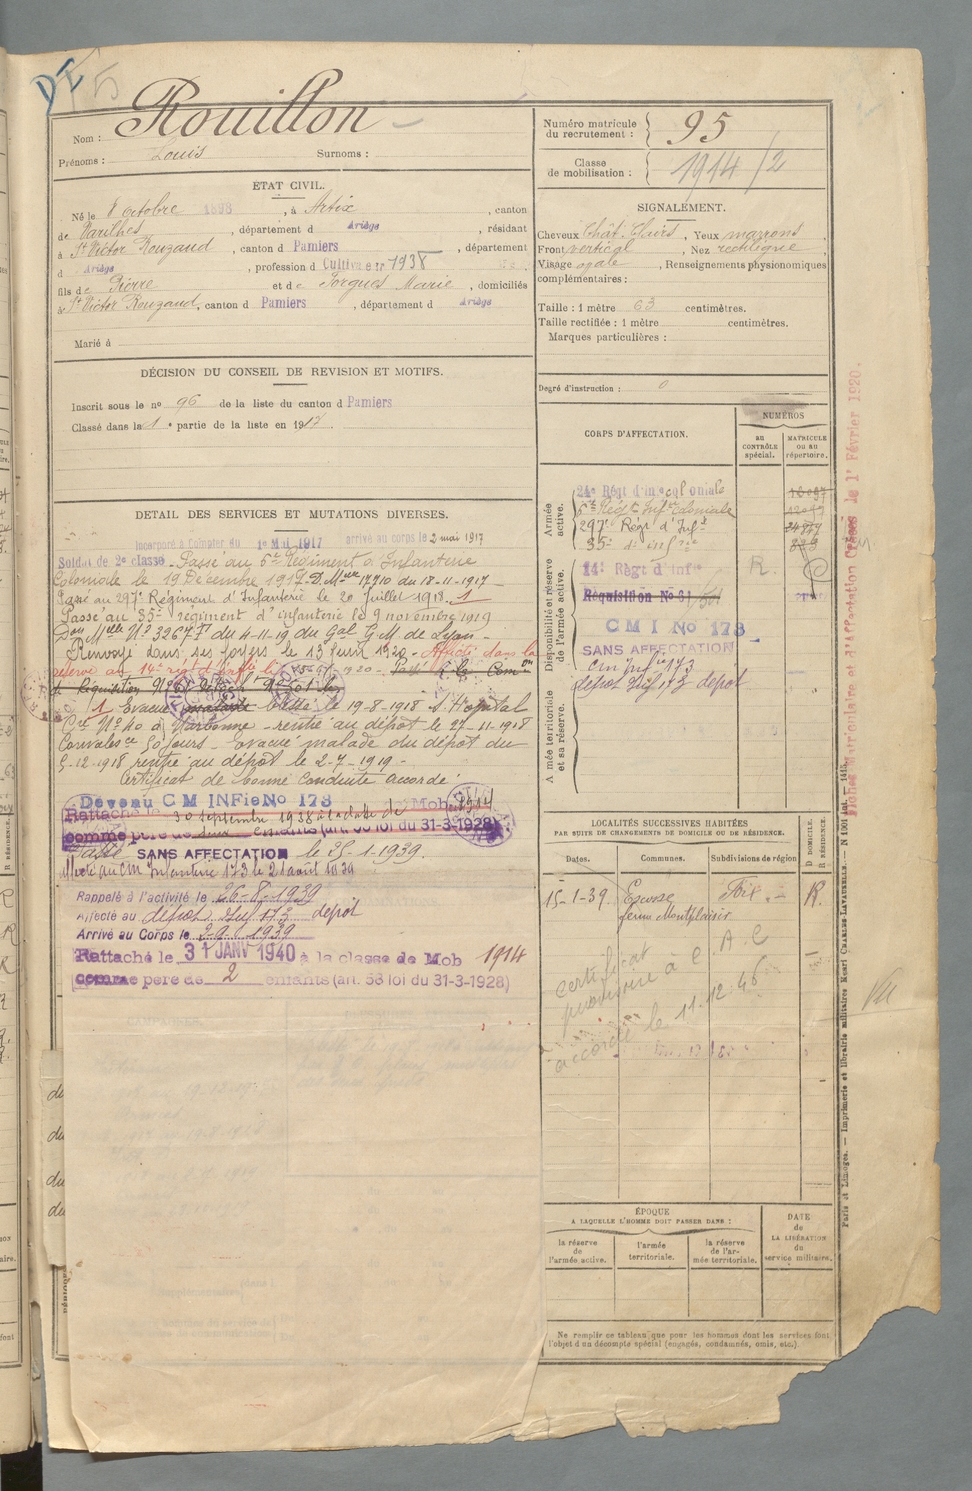 Rouillon
Nom :
Prénoms : Louis Surnoms :
ETAT CIVIL.
Né le 8 octobre 1898, à Artix, canton
de Varilhes, département d Ariège, résidant
à St Victor Rouzaud, canton d Pamiers, département
d Ariège, profession d Cultivateur 1938
fils de Pierre et de Sorgues Marie, domiciliés
à St Victor Rouzaud, canton d Pamiers, département d Ariège
Marié à
DÉCISION DU CONSEIL DE REVISION ET MOTIFS.
Inscrit sous le no 96 de la liste du canton d Pamiers
Classé dans la 1e partie de la liste en 1917.
DETAIL DES SERVICES ET MUTATIONS DIVERSES.
Incorporé à compter du 1er Mai 1917 arrivé au corps le 2 mai 1917
Soldat de 2e classe. Passé au 6e Régiment d'Infanterie
Coloniale le 19 Décembre 1917. D. Mlle 17910 du 18-11-1917
Passé au 297e Régiment d'Infanterie le 20 Juillet 1918. 1
Passé au 35e régiment d'infanterie le 9 novembre 1919
Don Mlle No 3267 P du 4-11-19 du Gal G M de Lyon
Renvoyé dans ses foyers le 13 Juin 1920. Affecté dans la
réserve au 14e rég d'inf
1 Evacué malade blessé le 19-8-1918 Hopital
Cre No 40 à Narbonne - rentré au dépot le 27-11-1918
Convalesce 50 jours - Evacué malade du dépot du
5-12-1918 rentré au dépot le 2-7-1919 -
Certificat de bonne conduite accordé.
Dévolu C M INFie No 173
Rattaché le 30 septembre 1938 à la classe de Mob 1914
comme père de deux enfants (art. 58 loi du 31-3-1928)
Passé SANS AFFECTATION le 15-1-1939.
affecté au CM Infanterie 173 le 21 août 1939
Rappelé à l'activité le 26-8-1939
Affecté au dépot Inf 173 dépot
Arrivé au Corps le 1939
Rattaché le 31 JANV 1940 à la classe de Mob 1914
comme père de 2 enfants (art. 58 loi du 31-3-1928)
Numéro matricule
du recrutement : 95
Classe
de mobilisation : 1914/2
SIGNALEMENT.
Cheveux Chât. Clairs, Yeux marrons
Front vertical, Nez rectiligne
Visage ovale, Renseignements physionomiques
complémentaires :
Taille : 1 mètre 63 centimètres.
Taille rectifiée : 1 mètre centimètres.
Marques particulières :
Degré d'instruction : 0
CORPS D'AFFECTATION.
NUMÉROS
AU CONTRÔLE spécial.
MATRICULE OU AU répertoire.
Armée active.
24e Régt d'inf coloniale
6e Régt Infie Coloniale
297e Régt d'Inf
35e d'infrie
Disponibilité et réserve de l'armée active.
14e Régt d'Infie R.
Réquisition No 61
C M I No 173
SANS AFFECTATION
CM Infie 173
dépot Inf 173 dépot
Armée territoriale et sa réserve.
LOCALITÉS SUCCESSIVES HABITÉES
PAR SUITE DE CHANGEMENTS DE DOMICILE OU DE RÉSIDENCE.
D DOMICILE.
R RÉSIDENCE.
Dates. Communes. Subdivisions de région
15-1-39. Escosse Foix R.
ferme Montplaisir
certificat
provisoire à C.A.C
accordé le 11.12.46
ÉPOQUE
A LAQUELLE L'HOMME DOIT PASSER DANS :
DATE de LA LIBÉRATION du service militaire.
la réserve de l'armée active.
l'armée territoriale.
la réserve de l'armée territoriale.
Ne remplir ce tableau que pour les hommes dont les services font
l'objet d'un décompte spécial (engagés, condamnés, omis, etc.).
Fiches Matriculaire et d'Affectation Créées le 1er Février 1920.
Paris et Limoges. — Imprimerie et librairie militaires Henri CHARLES-LAVAUZELLE.
Vu